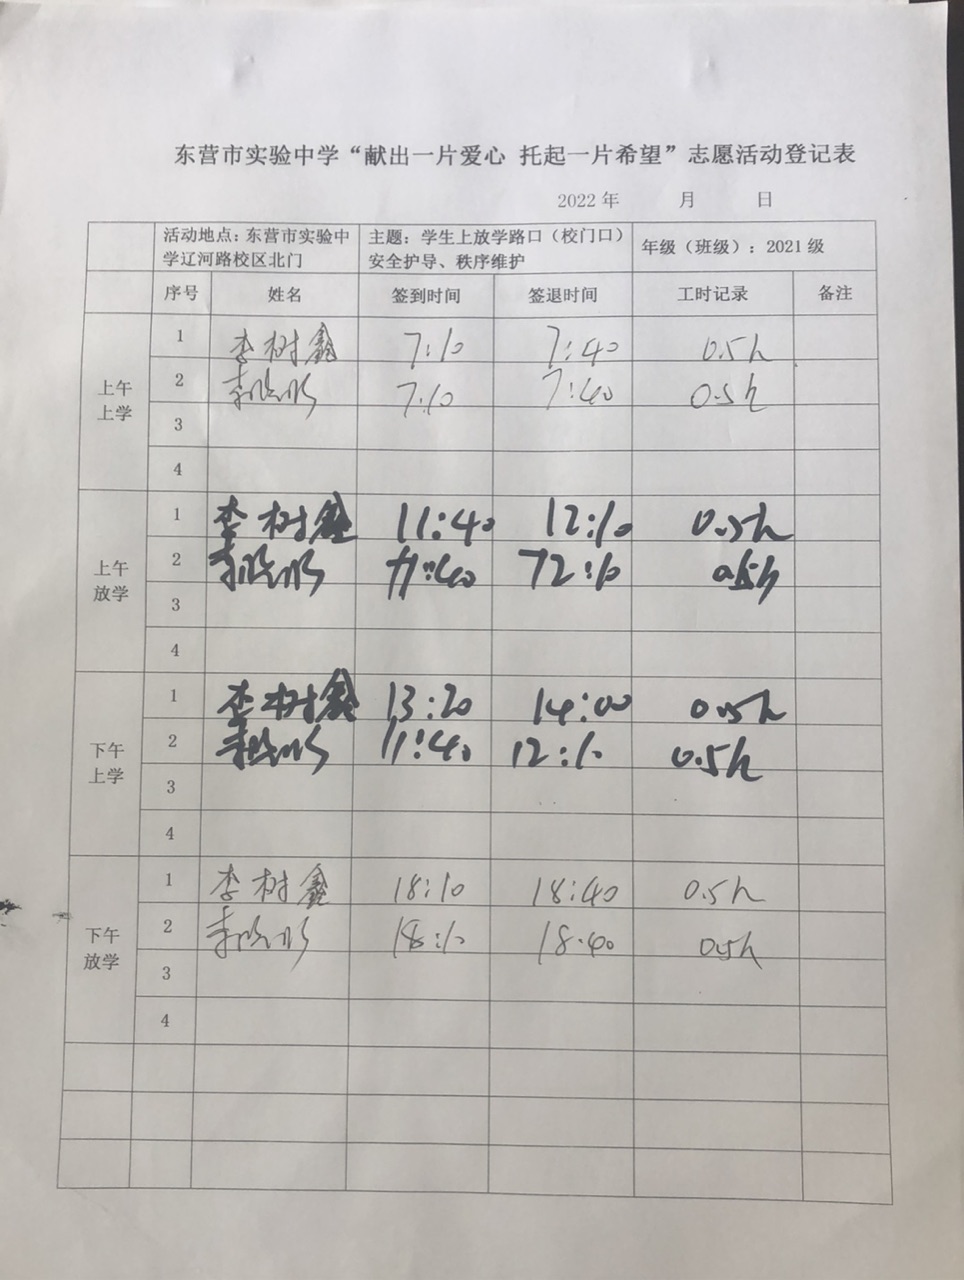 东营市实验中学“献出一片爱心 托起一片希望”志愿活动登记表
2022 年 月 日
活动地点：东营市实验中学辽河路校区北门 主题：学生上放学路口（校门口）安全护导、秩序维护 年级（班级）：2021 级
序号 姓名 签到时间 签退时间 工时记录 备注
上午上学
1 李树鑫 7:10 7:40 0.5h
2 李 7:10 7:40 0.5h
3
4
上午放学
1 李树鑫 11:40 12:10 0.5h
2 李 11:40 12:10 0.5h
3
4
下午上学
1 李树鑫 13:20 14:00 0.5h
2 李 11:40 12:10 0.5h
3
4
下午放学
1 李树鑫 18:10 18:40 0.5h
2 李 18:10 18:40 0.5h
3
4